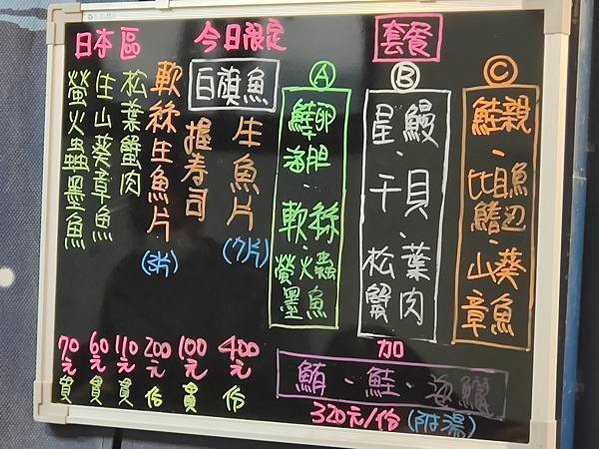 日本區
今日限定
套餐
白旗魚
生魚片
(7片)
400元
份
握壽司
100元
貫
軟絲生魚片
(3片)
200元
份
松葉蟹肉
110元
貫
生山葵章魚
60元
貫
螢火蟲墨魚
70元
貫
A
鮭卵
海胆
軟絲
螢火蟲
墨魚
B
星鰻
干貝
松葉
蟹肉
C
鮭親
比目魚
鰭辺
山葵
章魚
加
鮪・鮭・海鱺
320元/份(附湯)